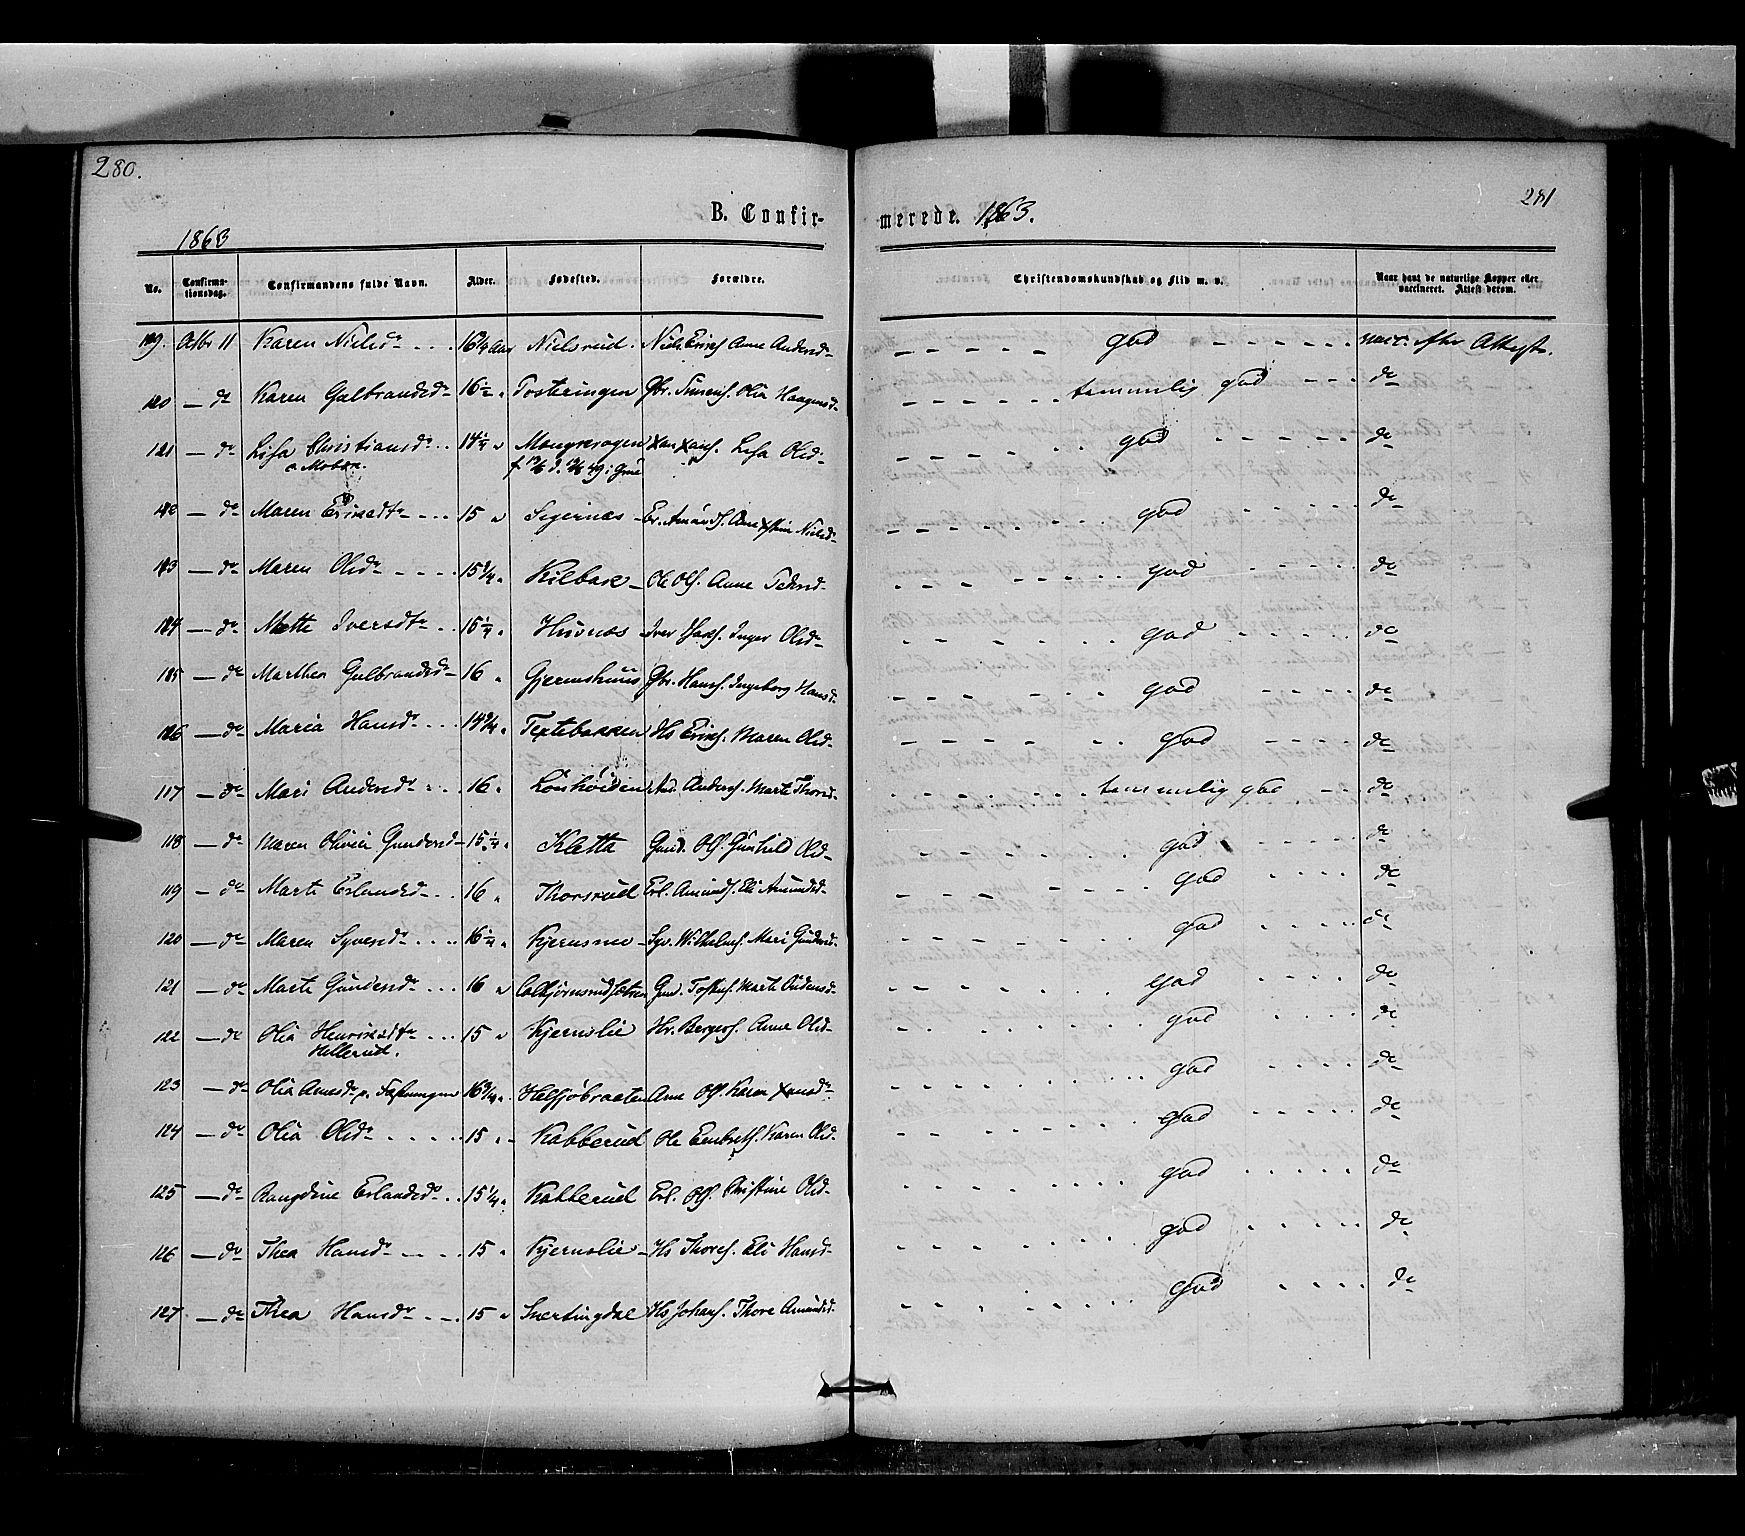 280.
281
B. Confir-
merede. 1863.
1863
No. Confirmationsdag. Confirmandens fulde Navn. Alder. Fødested. Forældre. Christendomskundskab og Flid m. v. Naar havt de naturlige Kopper eller vaccineret. Attest derom.
Octbr 11 Karen Nielsdr 16 3/4 Aar Nielsrud. Niels Erichs. Anne Andersd. god vacc. efter Attest.
120 — do Karen Gulbrandsdr 16 1/2 " Tosteringen Gbr. Simens. Olia Haagensd. temmelig god do
121 — do Lisa Christiansdr 14 1/4 " Lisa Olsd. god do
— do Maren Ericsdtr 15 " Segernæs Er. Amunds. Nielsd. god do
— do Maren Olsdr 15 1/4 " Kilbak Ole Ols. Anne Pedersd. god do
— do Mette Iversdtr 15 1/4 " Huvnæs Iver Isaks. Inger Olsd. god do
— do Marthea Gulbrandsdr 16 " Gjermshuus Gbr. Hans. Ingeborg Hansd. god do
— do Maria Hansdr 14 3/4 " Teptebakken Hs Erichs. Maren Olsd. god do
117 — do Mari Andersdr 16 " And. Anders. Marte Thorsd. temmelig god do
118 — do Maren Olivia Gundersd 15 1/4 " Kletta Gund. Ols. Gunhild Olsd. god do
119 — do Marte Erlandsd 16 " Thorsrud Erl. Amunds. Eli Amundsd. god do
120 — do Maren Syversdr 16 1/4 " Kjernsmo Syv. Wilhelms. Mari Gundersd. god do
121 — do Marte Gundersdr 16 " Gund. Tostens. Marte Oudensd. god do
122 — do Olia Henriksdtr 15 " Kjernslie Hr. Bergers. Anne Olsd. god do
Hellerud.
123 — do Olia Arnesdr p. Fæstningen 16 3/4 " Helsjøbraaten Arne Ols. Karen god do
124 — do Olia Olsdr 15 " Kabberud Ole Embrets. Karen Olsd. god do
125 — do Rangdine Erlandsdr 15 1/4 " Kabberud Erl. Ols. Christine Olsd. god do
126 — do Thea Hansdr 15 " Kjernslie Hs Thores. Eli Hansd. god do
127 — do Thea Hansdr 15 " Sværtingdal Hs Johans. Thore Amundsd. god do